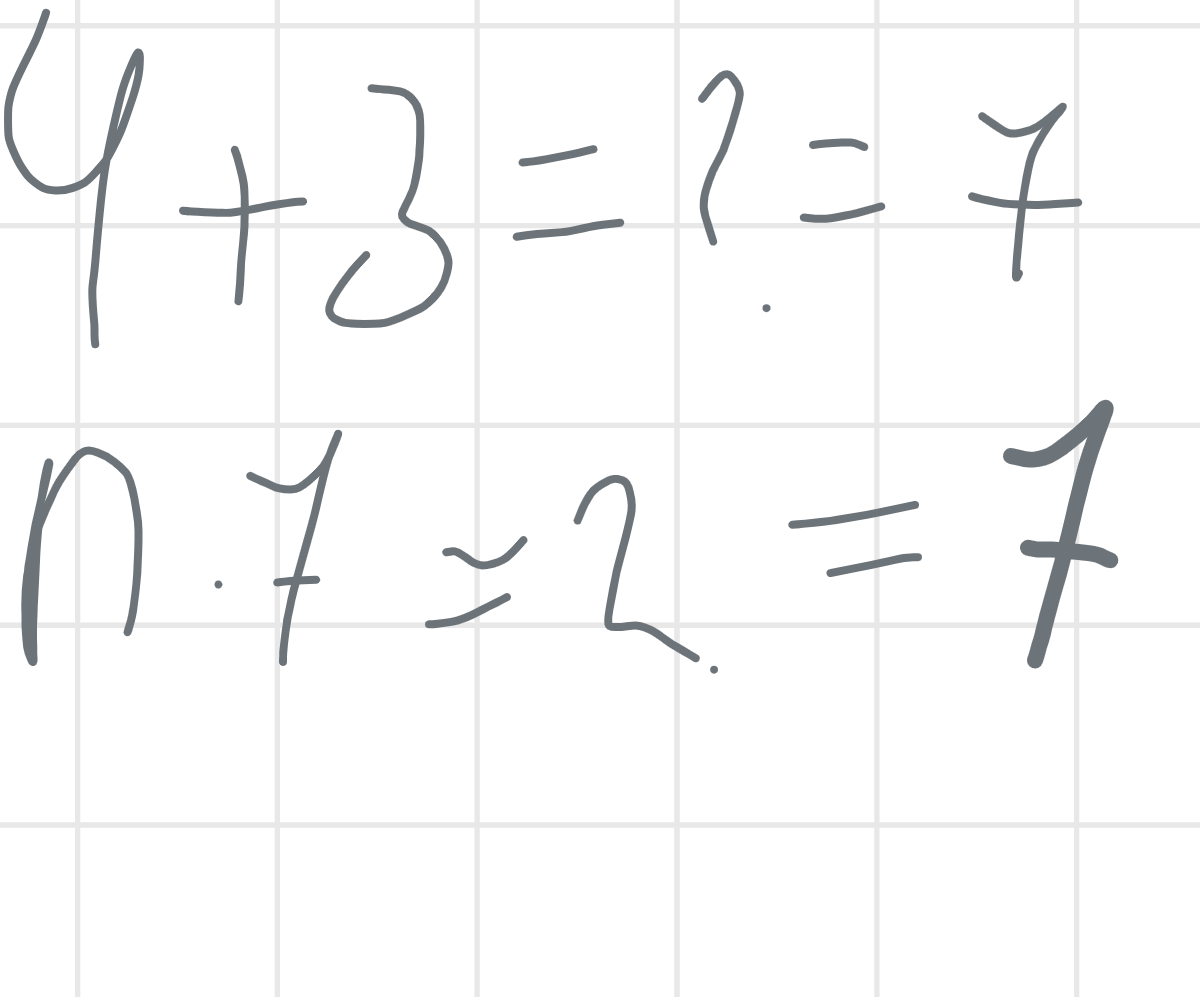 4 + 3 = ? = 7
n . 7 = ? = 7